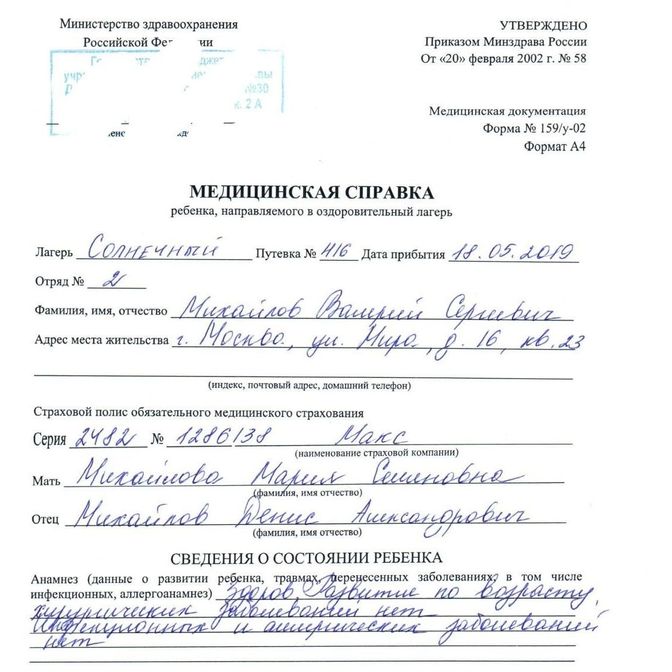 Министерство здравоохранения
Российской Федерации
№30
к. 2 А
УТВЕРЖДЕНО
Приказом Минздрава России
От «20» февраля 2002 г. № 58
Медицинская документация
Форма № 159/у-02
Формат А4
МЕДИЦИНСКАЯ СПРАВКА
ребенка, направляемого в оздоровительный лагерь
Лагерь Солнечный Путевка № 416 Дата прибытия 18.05.2019
Отряд № 2
Фамилия, имя, отчество Михайлов Валерий Сергеевич
Адрес места жительства г. Москва, ул. Мира, д. 16, кв. 23
(индекс, почтовый адрес, домашний телефон)
Страховой полис обязательного медицинского страхования
Серия 2482 № 1286138 Макс
(наименование страховой компании)
Мать Михайлова Мария Семеновна
(фамилия, имя отчество)
Отец Михайлов Денис Александрович
(фамилия, имя отчество)
СВЕДЕНИЯ О СОСТОЯНИИ РЕБЕНКА
Анамнез (данные о развитии ребенка, травмах, перенесенных заболеваниях, в том числе
инфекционных, аллергоанамнез) Здоров, Развитие по возрасту,
хирургических заболеваний нет
Инфекционных и аллергических заболеваний
нет